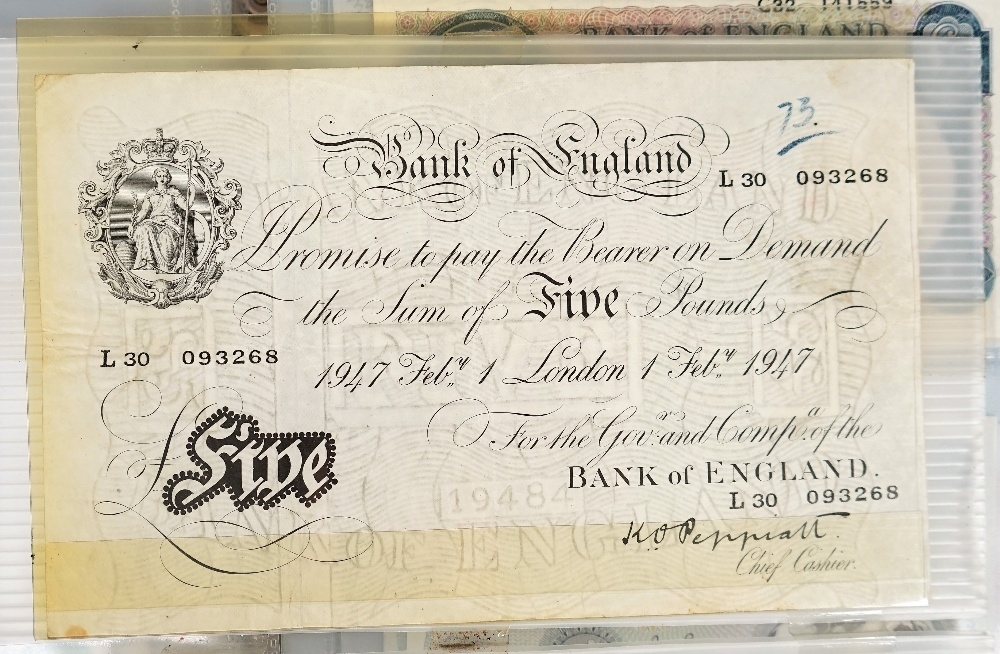 C32 141559
BANK of ENGLAND
73.
Bank of England
L 30 093268
I Promise to pay the Bearer on Demand
the Sum of Five Pounds
L 30 093268
1947 Feb.ry 1 London 1 Feb.ry 1947
£Five
For the Gov.r and Comp.a of the
BANK of ENGLAND.
19484
L 30 093268
K O Peppiatt
Chief Cashier.
OF ENGLAND